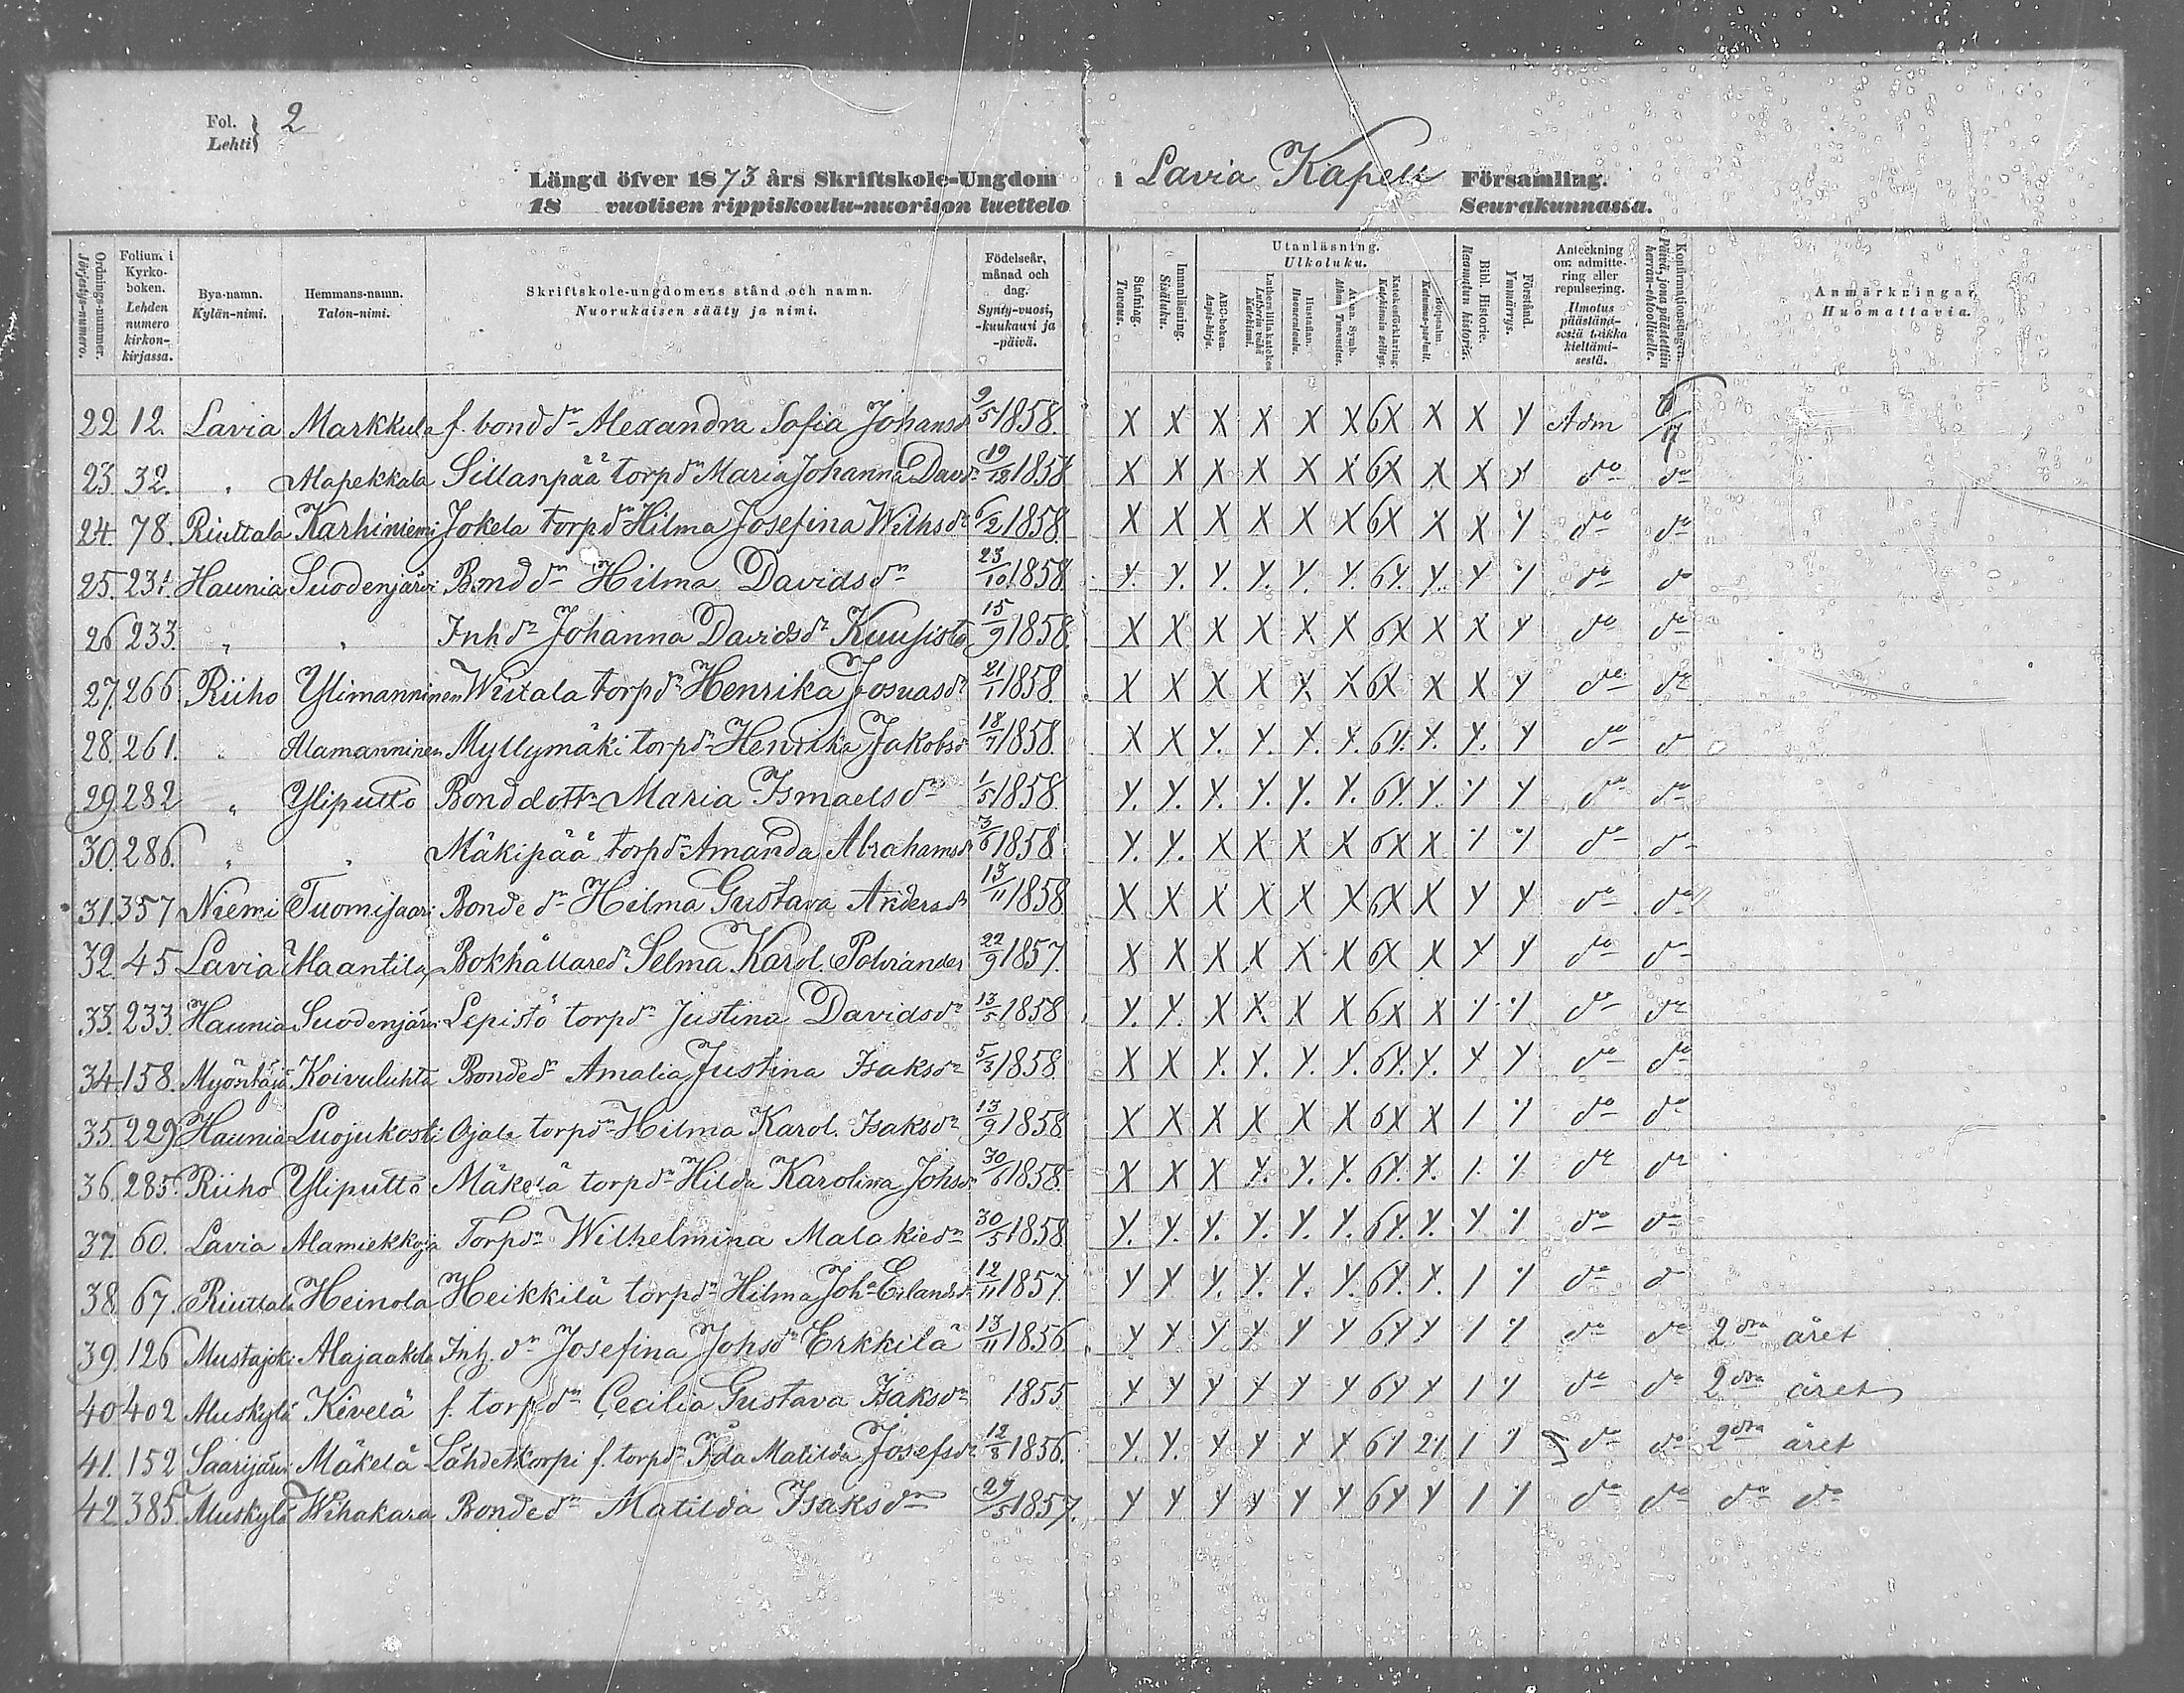 Fol. Lehti} 2
Längd öfver 1873 års Skriftskole-Ungdom i Lavia Kapell Församling.
18 vuotisen rippiskoulu-nuorison luettelo Seurakunnassa.
Ordnings-nummer. Järjestys-numero. Folium i Kyrko-boken. Lehden numero kirkon-kirjassa. Bya-namn. Kylän-nimi. Hemmans-namn. Talon-nimi. Skriftskole-ungdomens stånd och namn. Nuorukaisen sääty ja nimi. Födelseår, månad och dag. Synty-vuosi, -kuukausi ja -päivä. Stafning. Tavaus. Innanläsning. Sisäluku. Utanläsning. Ulkoluku. ABC-boken. Aapis-kirja. Lutheri lilla katekes Lutherin vähä Katekismi. Hustaflan. Huoneentaulu. Athan. Symb. Athan. Tunnustus. Katekesförklaring. Katekismin selitys. Botpsalm. Katumus-psalmit. Bibl. Historie. Raamatun historia. Förstånd. Ymmärrys. Anteckning om admittering eller repulsering. Ilmotus pääständ-sestä taikka kieltämi-sestä. Konfirmationsdagen. Päivä, jona päästettiin herran-ehtoolliselle. Anmärkningar. Huomattavia.
22 12. Lavia Markkula f. bond dr Alexandra Sofia Johansdr 9/5 1858. X X X X X X 6X X X Y Adm 6/7
23 32. " Alapekkala Sillanpää torp dr Maria Johanna Davdr 19/12 1858 X X X X X X 6X X X Y do do
24. 78. Riuttala Karhiniemi Jokela torp dr Hilma Josefina Wilhsdr 6/2 1858. X X X X X X 6X X X Y do do
25. 231. Haunia Suodenjärvi Bond dr Hilma Davidsdr 23/10 1858. Y. Y. Y Y. Y. Y. 6Y. Y. Y Y do do
26 233. " " Inh dr Johanna Davidsdr Kuusisto 15/9 1858. X X X X X X 6X X X Y do do
27. 266. Riiho Ylimanninen Wiitala torp dr Henrika Josuasdr 21/1 1858. X X X X X X 6X X X Y do do
28. 261. " Alamanninen Myllymäki torp dr Henrika Jakobsdr 18/7 1858. X X Y. Y. Y. Y. 6Y. Y. Y. Y do do
29. 282 " Yliputto Bond dottr Maria Ismaelsdr 1/5 1858 Y. Y. Y. Y. Y. Y. 6Y. Y. Y Y do do
30. 286. " " Mäkipää torp dr Amanda Abrahamsdr 3/6 1858 Y. Y. X X X X 6X X Y Y do do
31. 357 Niemi Tuomisaari Bonde dr Hilma Gustava Andersdr 13/11 1858 X X X X X X 6X X Y Y do do
32. 45 Lavia Maantila Bokhållaredr Selma Karol. Polviander 22/9 1857. X X X X X X 6X X Y Y do do
33. 233. Haunia Suodenjärvi Lepistö torp dr Justina Davidsdr 13/5 1858 Y. Y. X X. X X 6X X Y Y do do
34. 158. Myöntäjä Koivuluhta Bondedr Amalia Justina Isaksdr 5/3 1858. X X Y. Y. Y. Y. 6Y. Y. Y Y do do
35. 229. Haunia Luojukoski Ojala torp dr Hilma Karol. Isaksdr 13/9 1858 X X X X X X 6X X 1 Y do do
36. 285. Riiho Yliputto Mäkelä torp dr Hilda Karolina Johsdr 30/6 1858. X X X Y. Y. Y. 6Y. Y. 1. Y do do
37. 60. Lavia Alamiekkoja Torp dr Wilhelmina Malakiedr 30/5 1858 Y. Y. Y. Y. Y. Y. 6Y. Y. Y Y do do
38. 67. Riuttala Heinola Heikkilä torp dr Hilma Joha Erlandsdr 12/11 1857. Y Y Y. Y. Y. Y. 6Y. Y. 1 Y do do
39. 126 Mustajoki Alajaakola Inh. dr Josefina Johsdr Erkkilä 13/11 1856. Y Y Y Y Y Y 6Y Y 1 Y do do 2dra året
40 402 Muskylä Kivelä f. torp dr Cecilia Gustava Isaksdr 1855 Y Y Y Y Y Y 6Y Y 1 Y do do 2dra året
41. 152 Saarijärvi Mäkelä Lähdekorpi f. torp dr Ida Matilda Josefsdr 12/8 1856. Y. Y. Y Y Y Y 6Y 2Y 1 Y do do 2dra året
42 385. Muskylä Wihakara Bondedr Matilda Isaksdr 29/5 1857. Y Y Y Y Y Y 6Y Y 1 Y do do do do